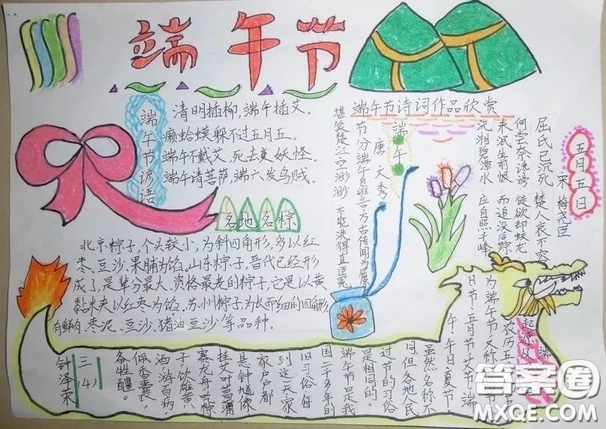 端午节
端午节谚语
清明插柳，端午插艾。
癞蛤蟆躲不过五月五。
端午不戴艾，死去变妖怪。
端午请菩萨，端六发乌贼。
端午节诗词作品欣赏
端午
唐 文秀
节分端午自谁言 万古传闻为屈原
堪笑楚江空渺渺 不能洗得直臣冤
五月五日
宋 梅尧臣
屈氏已沉死 楚人哀不容
何尝奈谗谤 徒欲却蛟龙
未泯生前恨 而追没后踪
沅湘碧潭水 应自照千峰
各地名粽
北京粽子，个头较小，为斜四角形，多以红
枣、豆沙、果脯为馅。山东粽子，晋代已经形
成了，是草分最大、资格最老的粽子，它是以黄
黏米夹以红枣为馅。苏州粽子为长而细的四角形
有鲜肉枣泥、豆沙、猪油豆沙等品种。
农历五
为端午节又称
日节五月节艾节端
午、午日、夏节
虽然名称不
同，但各地人民
过节的习俗
是相同的
端午节是我
国二千多年的
旧习俗，每
到这一天家
家户户都
挂艾叶菖蒲
赛龙舟吃粽
子，饮雄黄
酒，游百病
佩香囊，
备牲醴。
三(4)
钟泽荣
答案圈
MXQE.COM